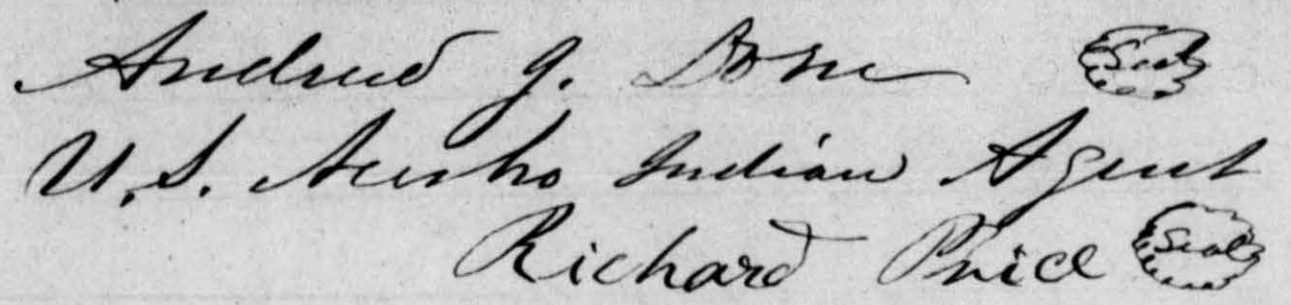 Andrew J. Dorn Seal
U.S. Neosho Indian Agent
Richard Price Seal